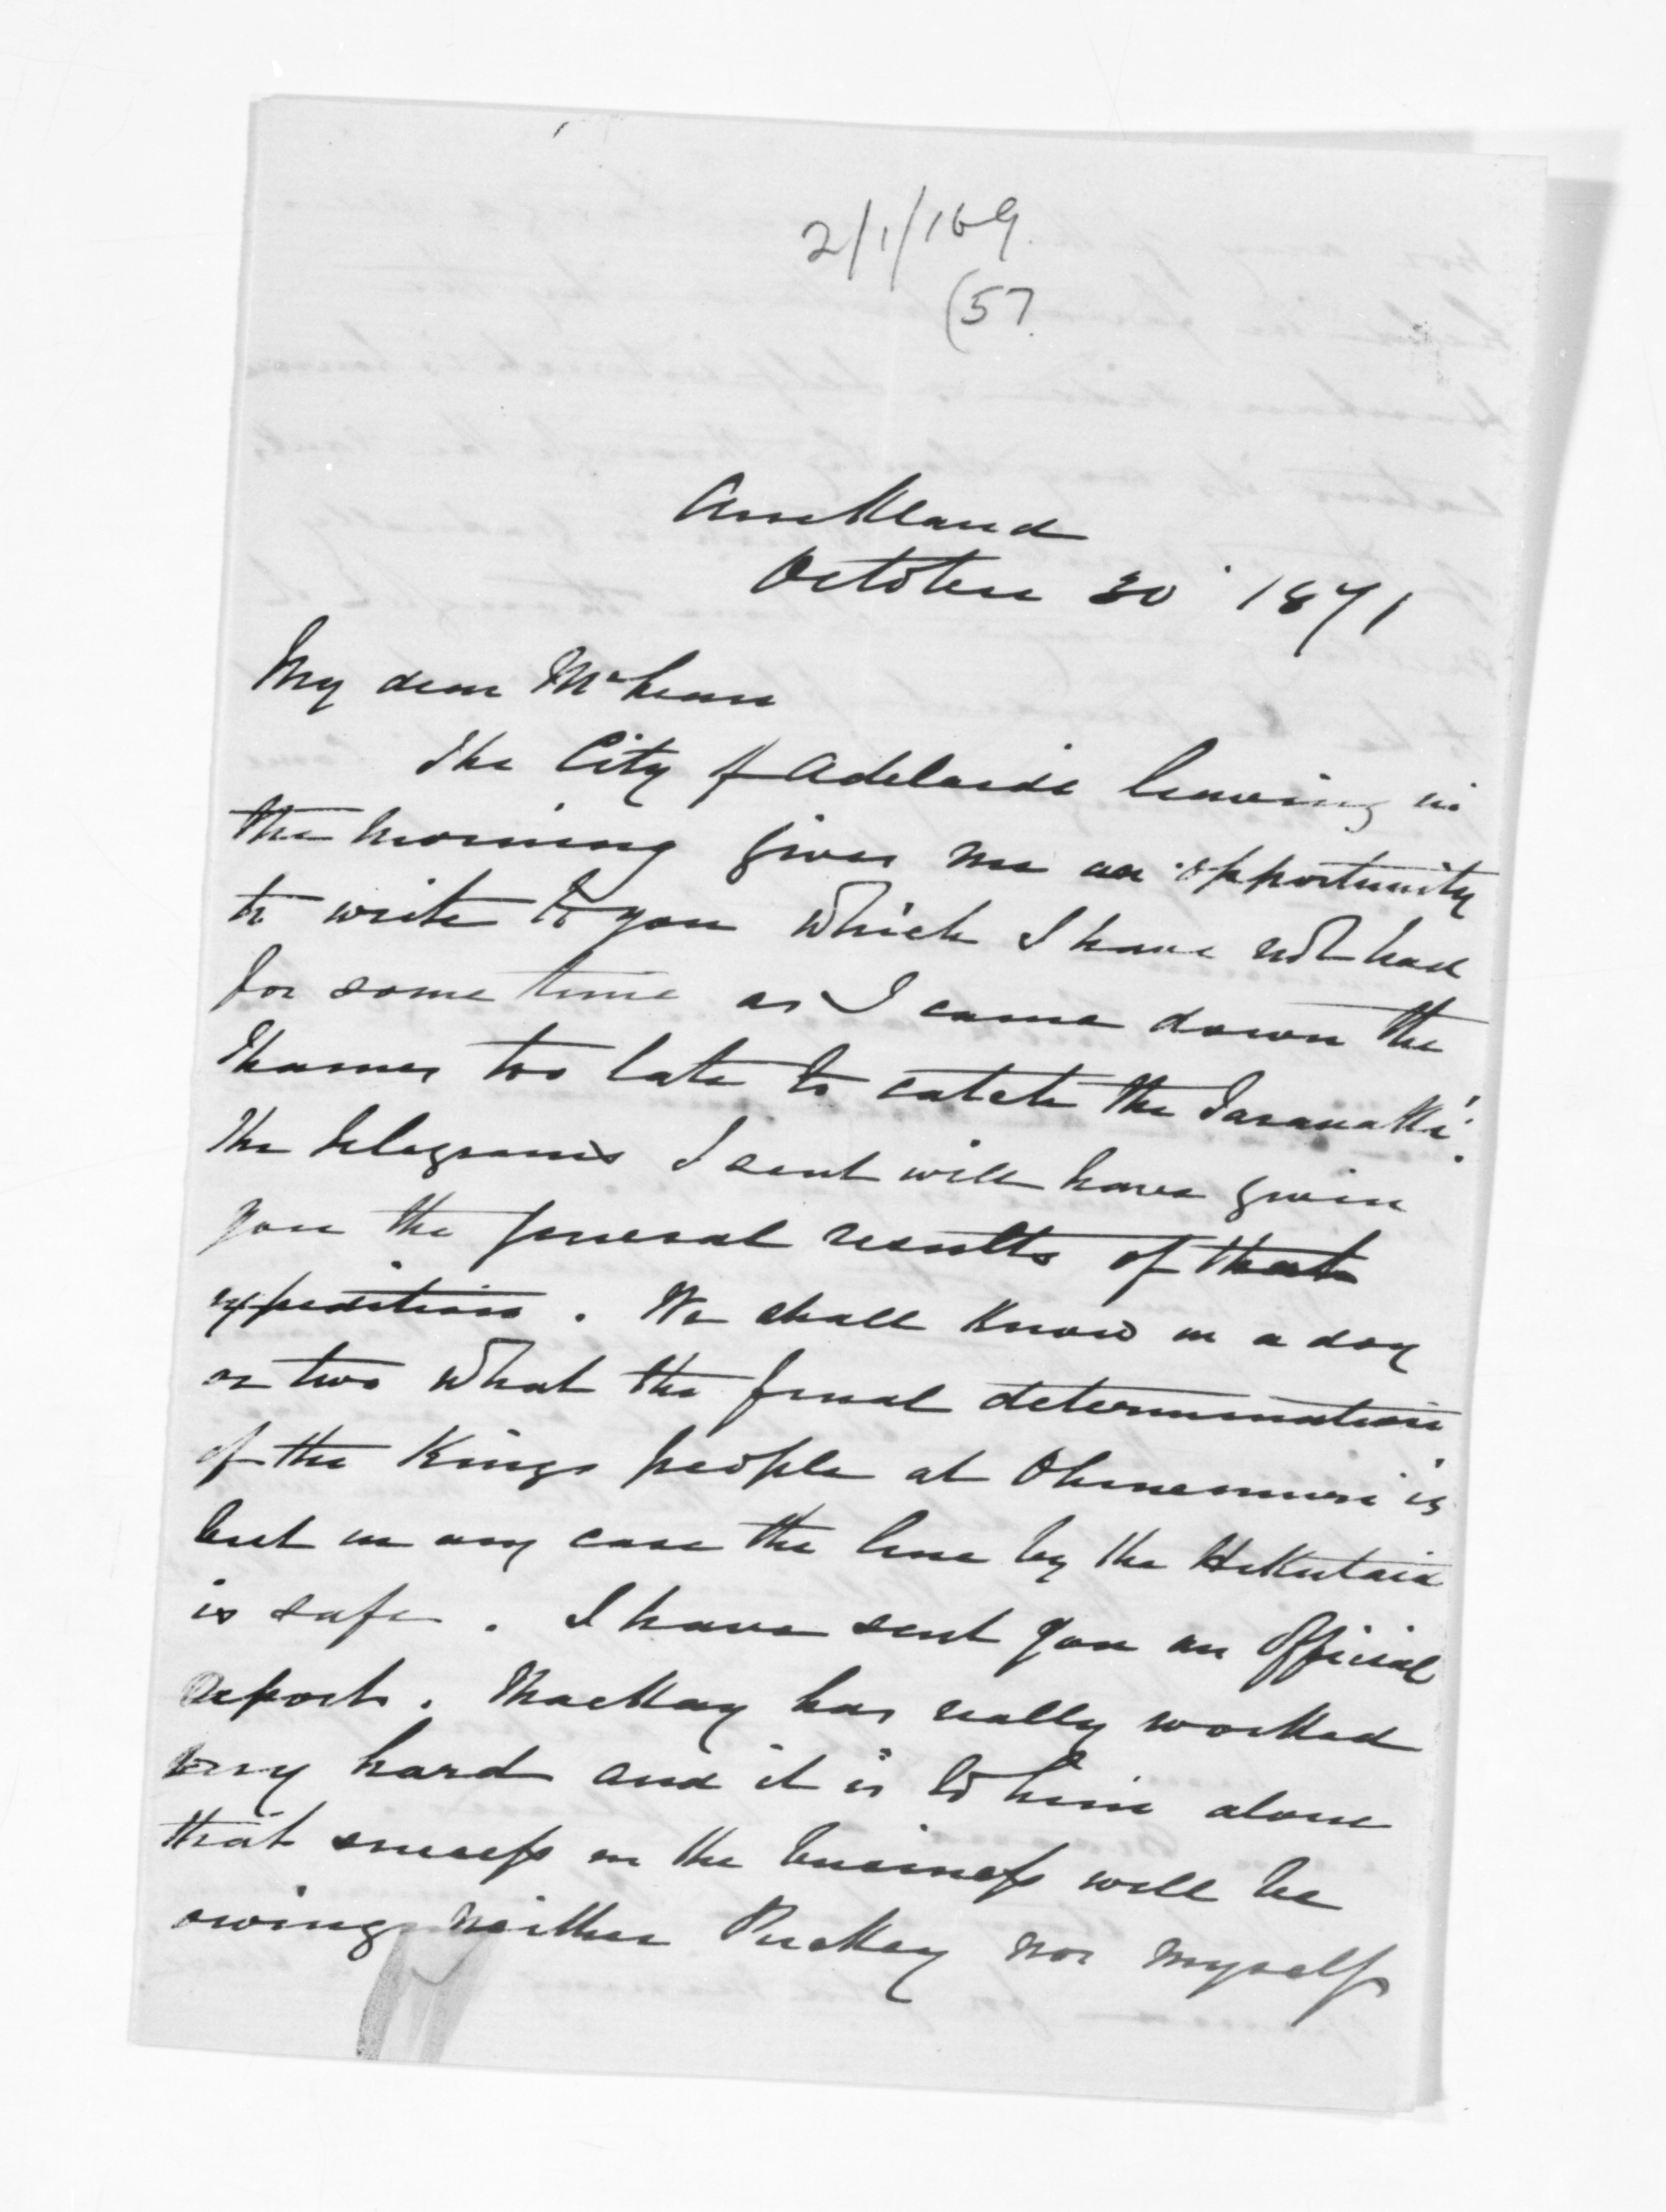 2/1/169
(57
Auckland
October 30 1871
My dear McLean
The City of Adelaide leaving in
the morning gives me an opportunity
to write to you which I have not had
for some time as I came down the
Thames too late to catch the Taranaki.
The telegrams I sent will have given
you the general results of that
expedition. We shall know in a day
or two what the final determination
of the Kings people at Ohinemuri is
but in any case the line by the Hikutaia
is safe. I have sent you an official
report. Mackay has really worked
very hard and it is to him alone
that success in the business will be
owing neither Puckey nor myself